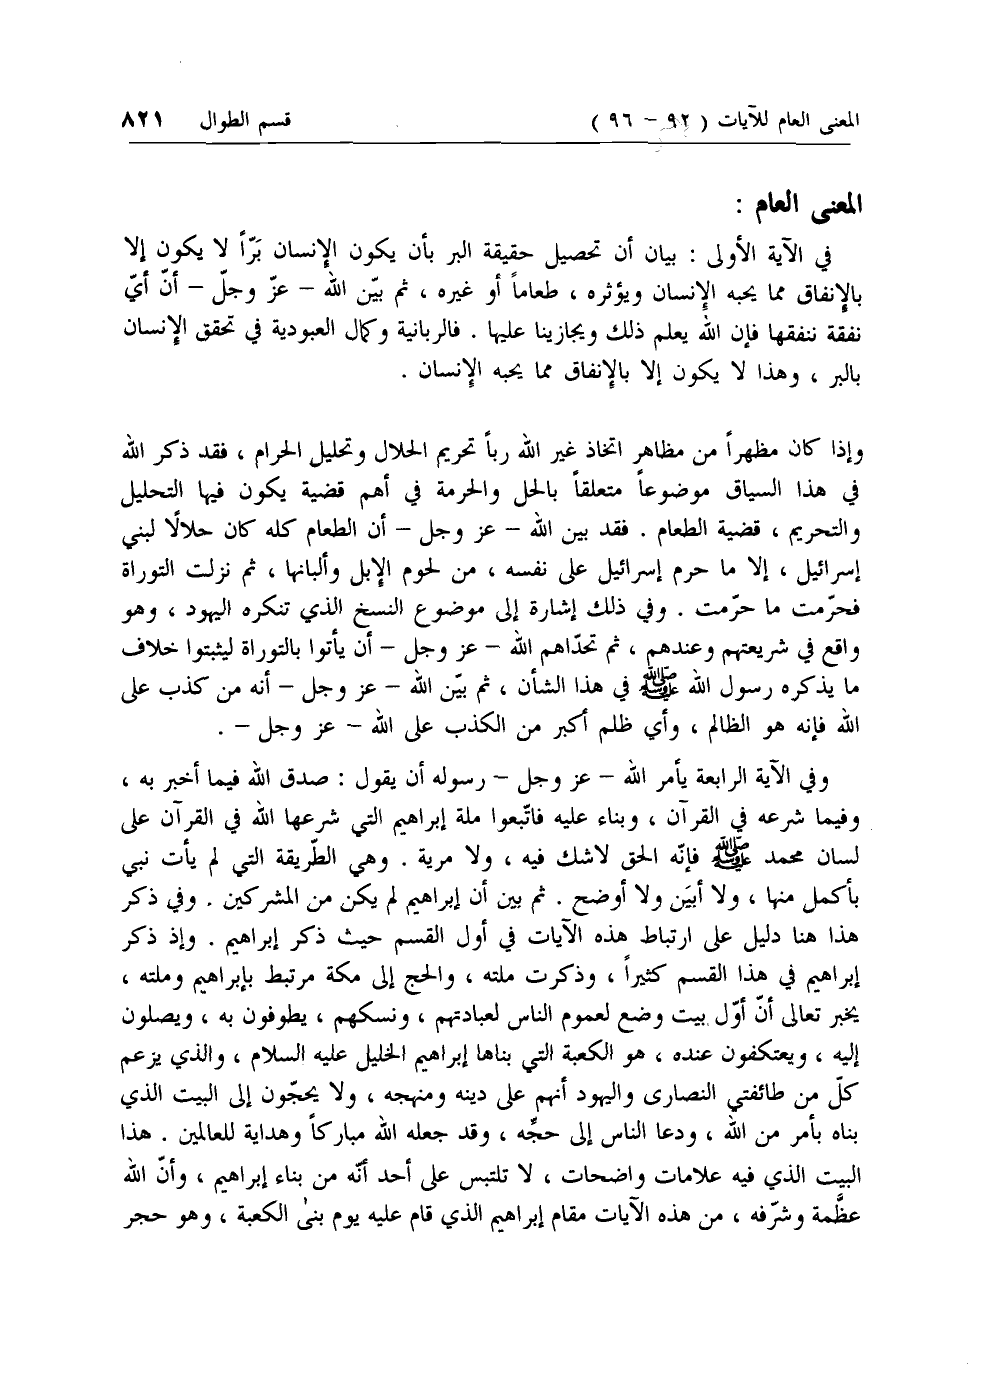 المعنى العام للآيات ( ٩٢ – ٩٦ ) قسم الطوال ٨٢١
المعنى العام :
في الآية الأولى : بيان أن تحصيل حقيقة البر بأن يكون الإنسان بَرّاً لا يكون إلا
بالإنفاق مما يحبه الإنسان ويؤثره ، طعاماً أو غيره ، ثم بيّن الله – عزّ وجلّ – أنّ أيّ
نفقة ننفقها فإن الله يعلم ذلك ويجازينا عليها . فالربانية وكمال العبودية في تحقق الإنسان
بالبر ، وهذا لا يكون إلا بالإنفاق مما يحبه الإنسان .
وإذا كان مظهراً من مظاهر اتخاذ غير الله رباً تحريم الحلال وتحليل الحرام ، فقد ذكر الله
في هذا السياق موضوعاً متعلقاً بالحل والحرمة في أهم قضية يكون فيها التحليل
والتحريم ، قضية الطعام . فقد بين الله – عز وجل – أن الطعام كله كان حلالًا لبني
إسرائيل ، إلا ما حرم إسرائيل على نفسه ، من لحوم الإبل وألبانها ، ثم نزلت التوراة
فحرّمت ما حرّمت . وفي ذلك إشارة إلى موضوع النسخ الذي تنكره اليهود ، وهو
واقع في شريعتهم وعندهم ، ثم تحدّاهم الله – عز وجل – أن يأتوا بالتوراة ليثبتوا خلاف
ما يذكره رسول الله ﷺ في هذا الشأن ، ثم بيّن الله – عز وجل – أنه من كذب على
الله فإنه هو الظالم ، وأي ظلم أكبر من الكذب على الله – عز وجل – .
وفي الآية الرابعة يأمر الله – عز وجل – رسوله أن يقول : صدق الله فيما أخبر به ،
وفيما شرعه في القرآن ، وبناء عليه فاتّبعوا ملة إبراهيم التي شرعها الله في القرآن على
لسان محمد ﷺ فإنّه الحق لاشك فيه ، ولا مرية . وهي الطّريقة التي لم يأت نبي
بأكمل منها ، ولا أبيَن ولا أوضح . ثم بين أن إبراهيم لم يكن من المشركين . وفي ذكر
هذا هنا دليل على ارتباط هذه الآيات في أول القسم حيث ذكر إبراهيم . وإذ ذكر
إبراهيم في هذا القسم كثيراً ، وذكرت ملته ، والحج إلى مكة مرتبط بإبراهيم وملته ،
يخبر تعالى أنّ أوّل بيت وضع لعموم الناس لعبادتهم ، ونسكهم ، يطوفون به ، ويصلون
إليه ، ويعتكفون عنده ، هو الكعبة التي بناها إبراهيم الخليل عليه السلام ، والذي يزعم
كلّ من طائفتي النصارى واليهود أنهم على دينه ومنهجه ، ولا يحجّون إلى البيت الذي
بناه بأمر من الله ، ودعا الناس إلى حجِّه ، وقد جعله الله مباركاً وهداية للعالمين . هذا
البيت الذي فيه علامات واضحات ، لا تلتبس على أحد أنّه من بناء إبراهيم ، وأنّ الله
عظَّمة وشرّفه ، من هذه الآيات مقام إبراهيم الذي قام عليه يوم بنىٰ الكعبة ، وهو حجر